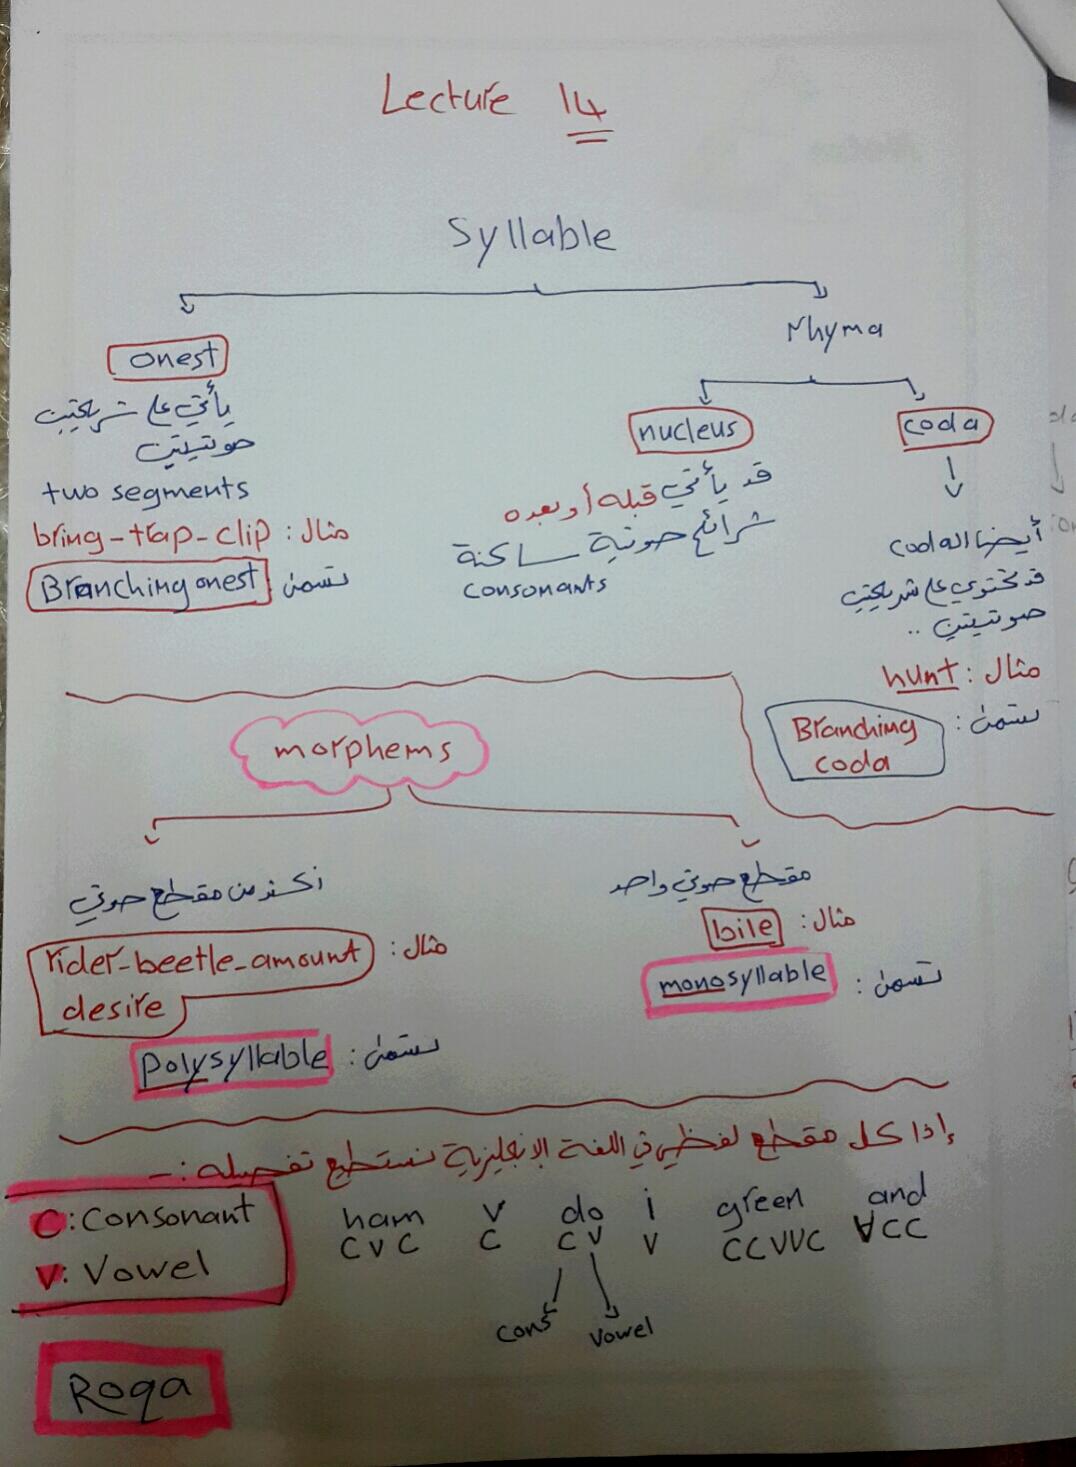 Lecture 14
Syllable
onest
يأتي على شريحتين
صوتيتين
two segments
مثال: bring-trap-clip
تسمى Branching onest
rhyma
nucleus
قد يأتي قبله أو بعده
شرائح صوتية ساكنة
consonants
coda
أيضا الـ coda
قد تحتوي على شريحتين
صوتيتين ..
مثال: hunt
تسمى: Branching
coda
morphems
أكثر من مقطع صوتي
مثال: rider-beetle-amount
desire
تسمى: polysyllable
مقطع صوتي واحد
مثال: bile
تسمى: monosyllable
إذا كل مقطع لفظي في اللغة الإنجليزية نستطيع تفصيله :-
C: Consonant
V: Vowel
ham v do i green and
CVC C CV V CCVVC VCC
cons vowel
Roqa